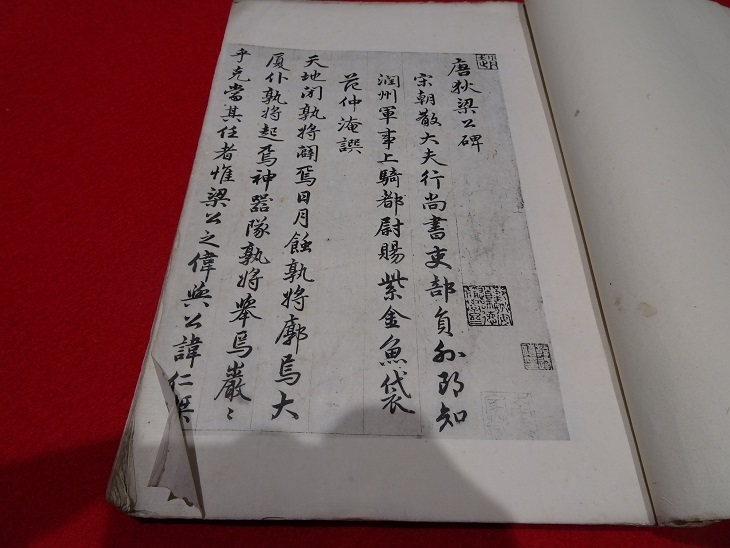 唐狄梁公碑
宋朝散大夫行尚書吏部貟外郎知
潤州軍事上騎都尉賜紫金魚袋
范仲淹譔
天地閉孰將闢焉日月蝕孰將廓焉大
厦仆孰將起焉神器隊孰將舉焉巖〻
乎克當其任者惟梁公之偉與公諱仁傑